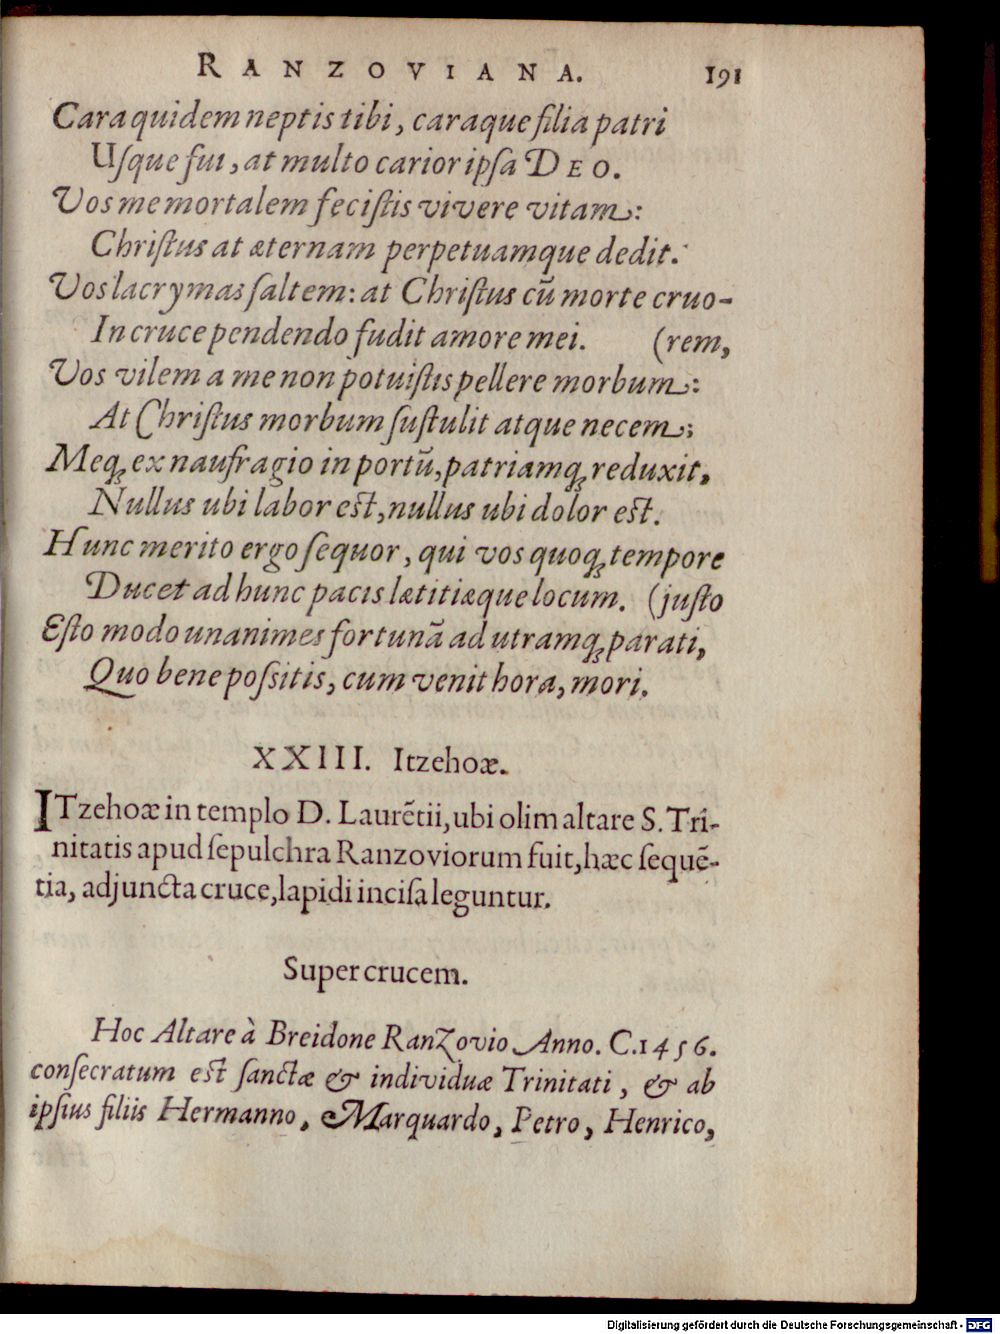 RANZOVIANA. 191
Cara quidem neptis tibi, caraque filia patri
Uſque fui, at multo carior ipſa DEO.
Vos me mortalem feciſtis vivere vitam:
Chriſtus at æternam perpetuamque dedit.
Vos lacrymas ſaltem: at Chriſtus cū morte cruo-
In cruce pendendo fudit amore mei. (rem,
Vos vilem a me non potuiſtis pellere morbum:
At Chriſtus morbum ſuſtulit atque necem;
Meq́ꝫ ex naufragio in portū, patriamq́ꝫ reduxit,
Nullus ubi labor eſt, nullus ubi dolor eſt.
Hunc merito ergo ſequor, qui vos quoq́ꝫ tempore
Ducet ad hunc pacis lætitiæque locum. (juſto
Eſto modo unanimes fortunā ad utramq́ꝫ parati,
Quo bene poſsitis, cum venit hora, mori.
XXIII. Itzehoæ.
ITzehoæ in templo D. Laurētii, ubi olim altare S. Tri-
nitatis apud ſepulchra Ranzoviorum fuit, hæc ſequē-
tia, adjuncta cruce, lapidi inciſa leguntur.
Super crucem.
Hoc Altare à Breidone Ranzovio Anno. C. 1456.
conſecratum eſt ſanctæ & individuæ Trinitati, & ab
ipſius filiis Hermanno, Marquardo, Petro, Henrico,
Digitalisierung gefördert durch die Deutsche Forschungsgemeinschaft - DFG